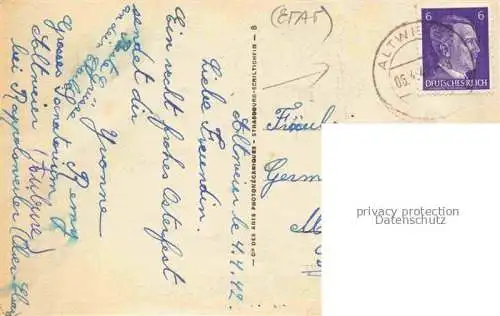 (ETAT)
ALTWIE
05.4.4
6 6
DEUTSCHES REICH
Altweier le 4.4.42.
Liebe Freundin.
Ein recht frohes Osterfest
sendet dir
Yvonne
Remy
Grosses Sanatorium
Altweier (Aubure)
bei Rappoltsweiler (Ober-Elsass)
- CIE DES ARTS PHOTOMÉCANIQUES - STRASBOURG-SCHILTIGHEIM - 8
Fräul
Germ
privacy protection
Datenschutz